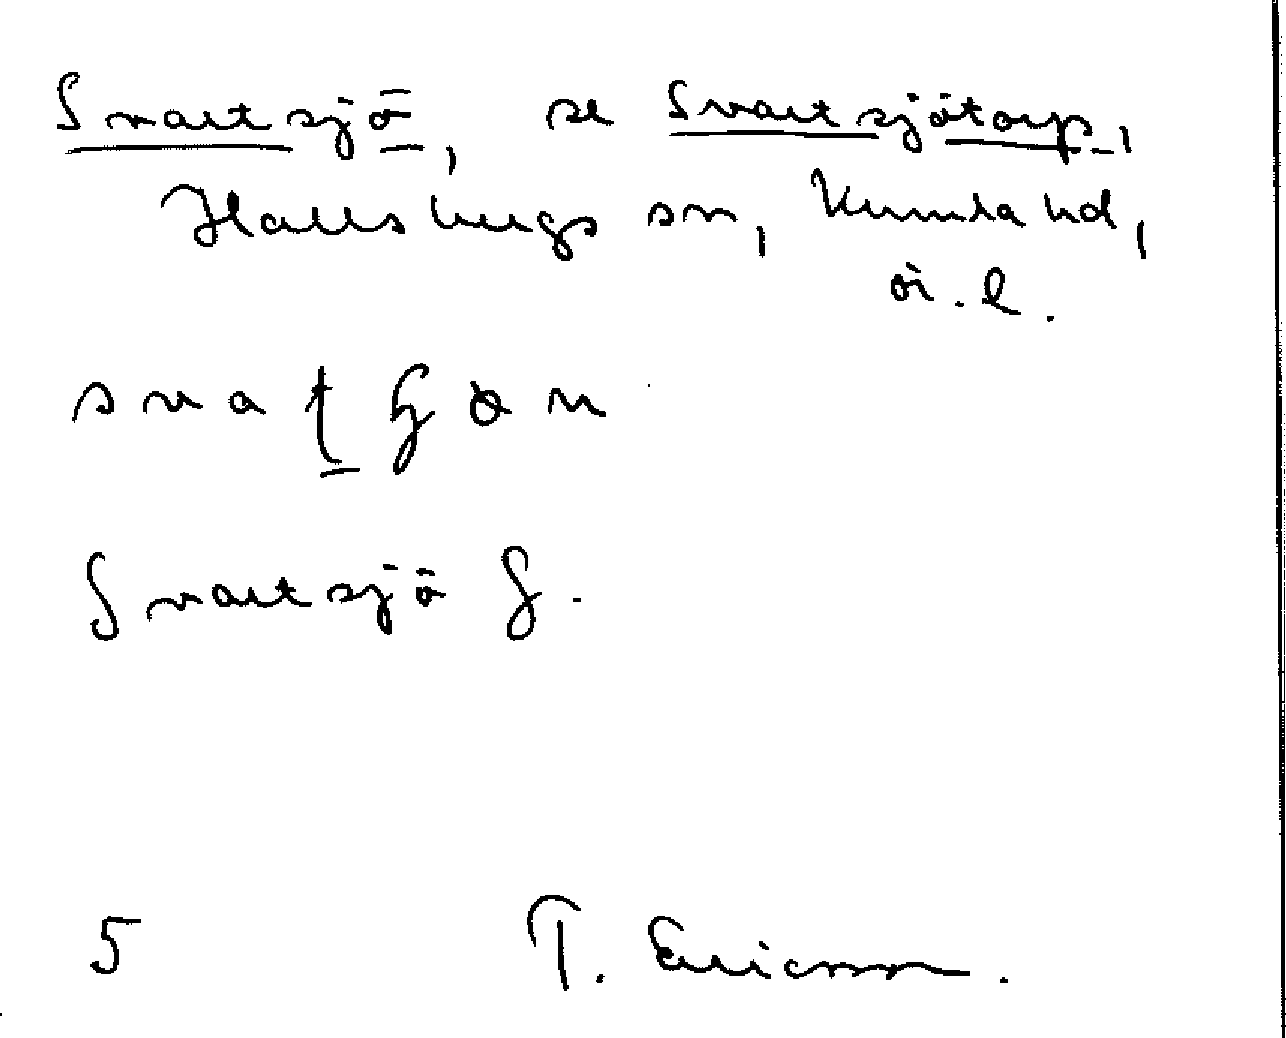 Svartsjö, se Svartsjötorp,
Hallsbergs sn, Kumla hd,
ör. l.
Svartsjö
5 T. Ericsson.